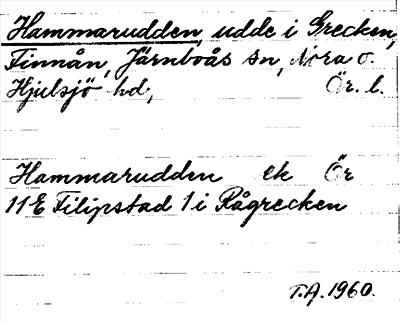 Hammarudden, udde i Grecken,
Finnån, Järnboås sn, Nora o.
Hjulsjö hd, Ör. l.
Hammarudden ek Ör
11 E Filipstad 1 i Rågrecken
T.A. 1960.